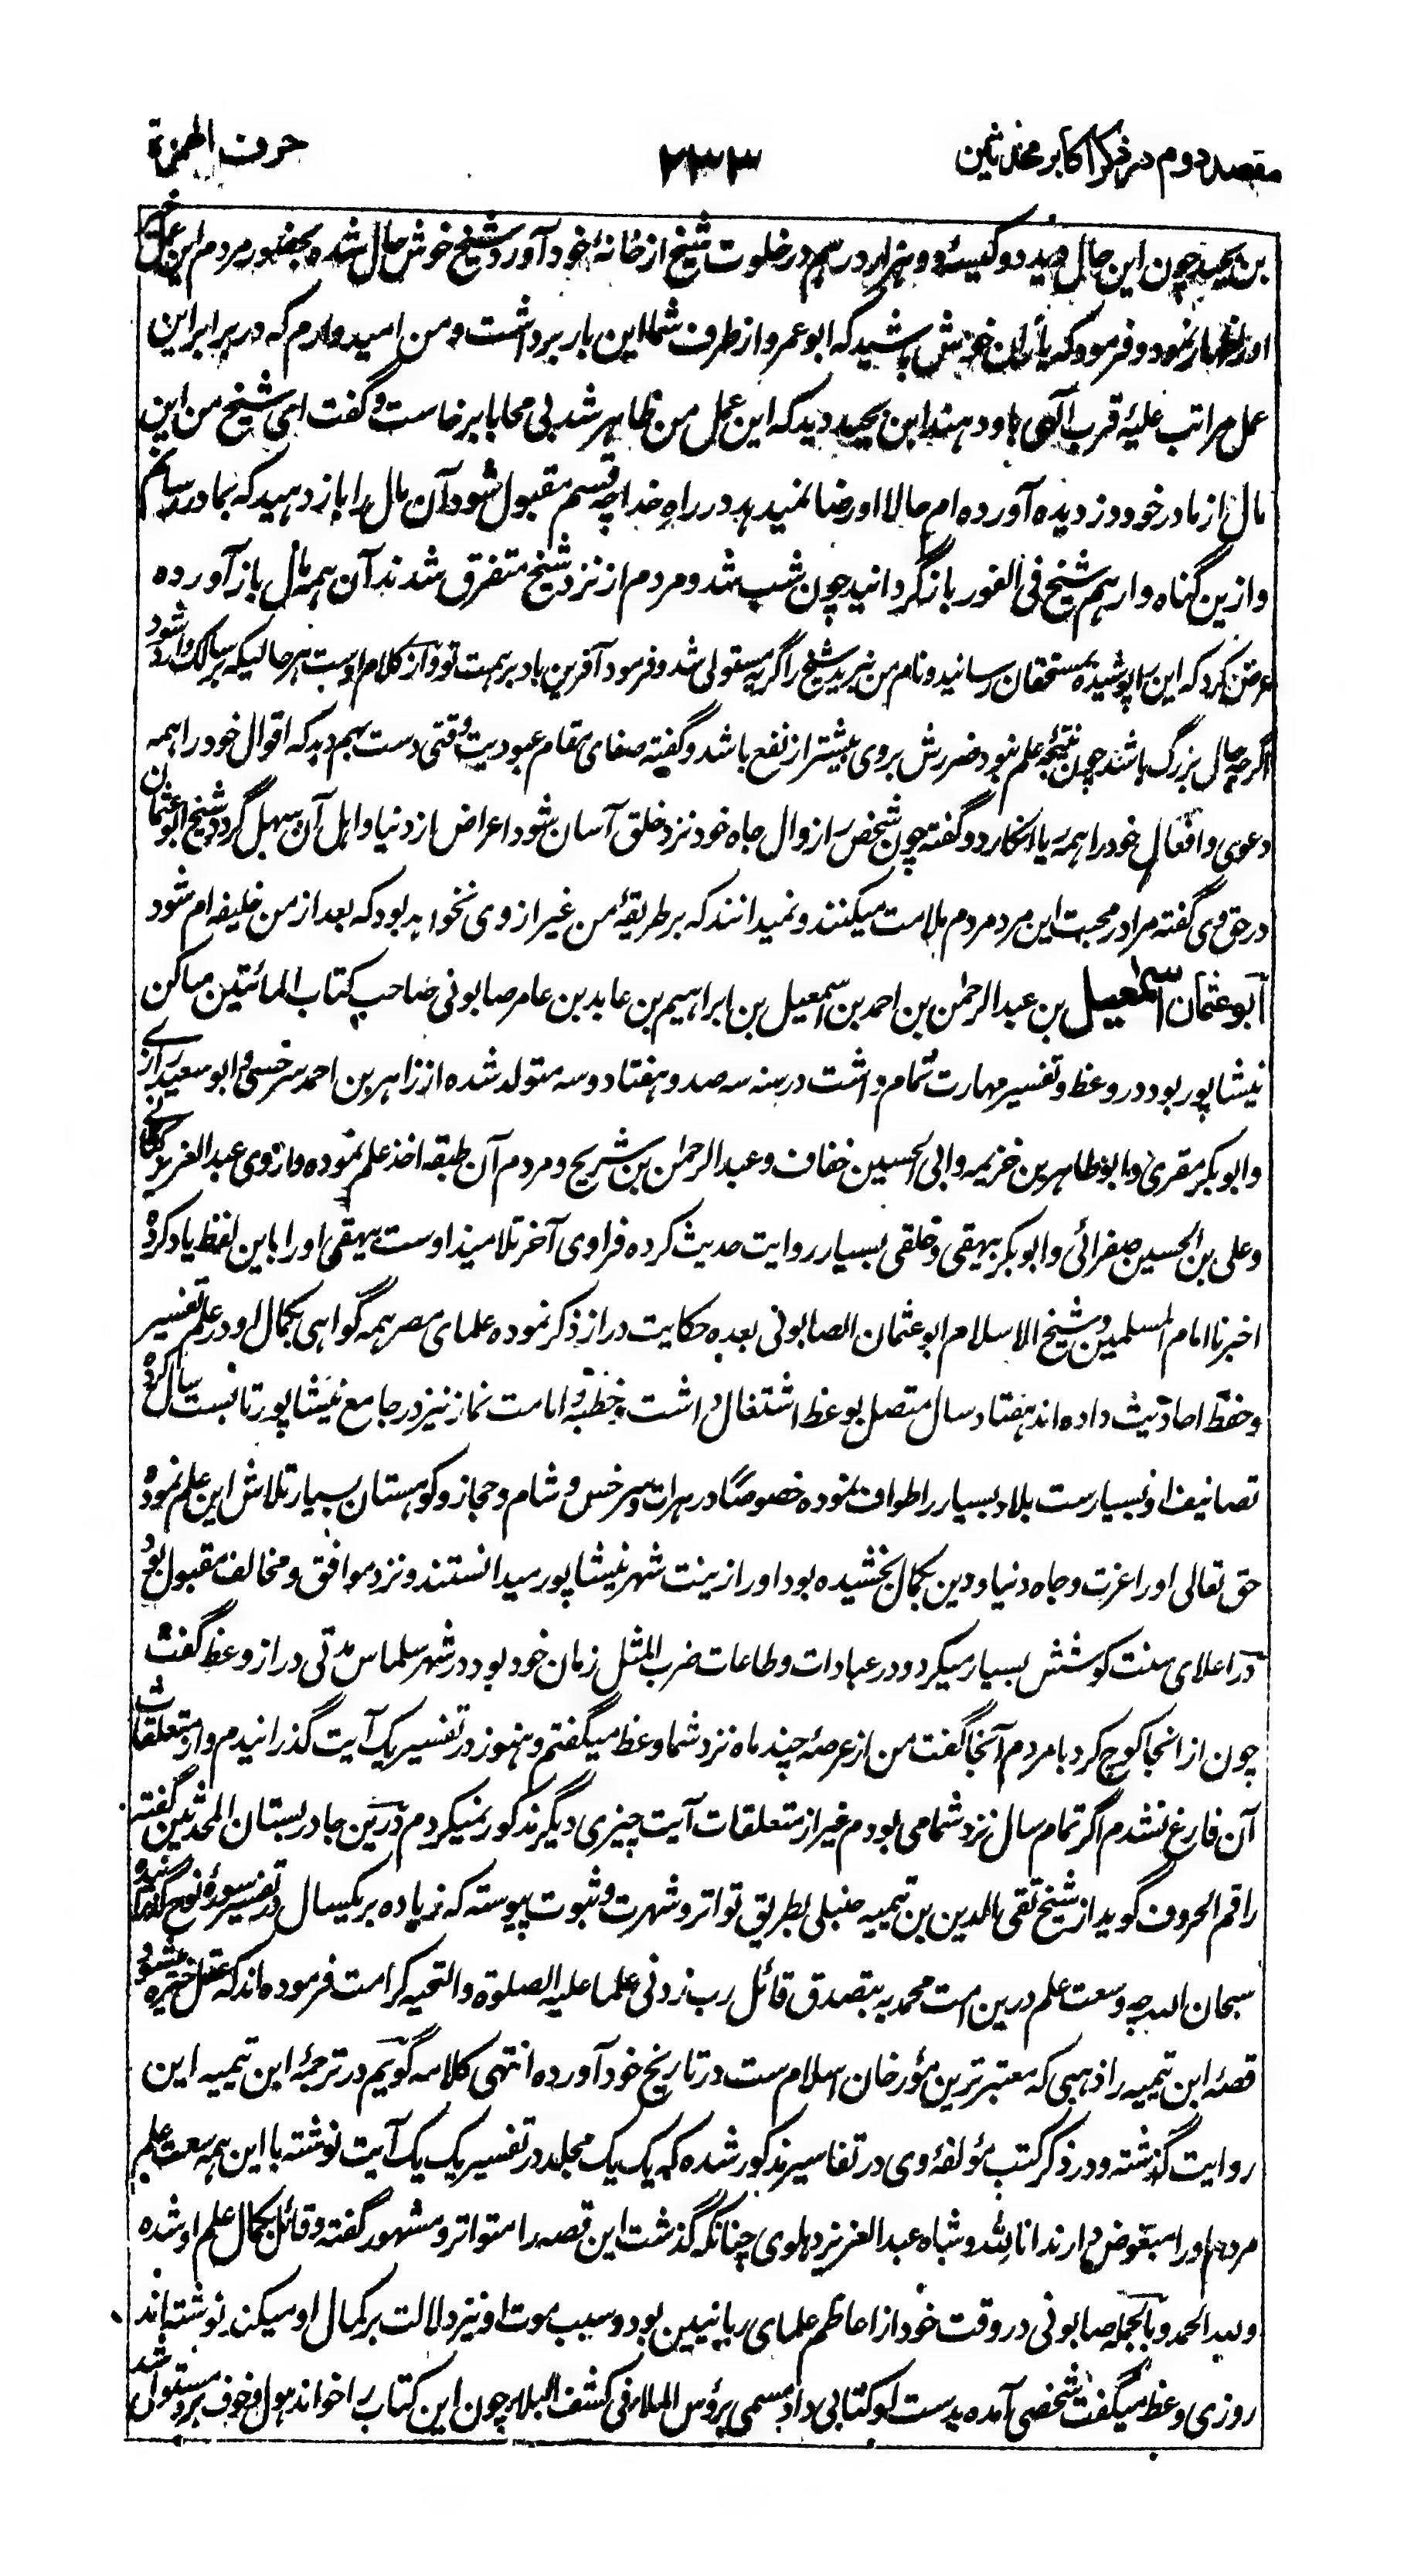 مقصد دوم در ذکر اکابر محدثین
۲۳۳
حرف الهمزة
بن بجید چون این حال دید دو کیسهٔ دو هزار درهم در خلوت شیخ از خانهٔ خود آورد شیخ خوش حال شده بحضور مردم این عمل خیر
او را اظهار نمود و فرمود که یاران خوش باشید که ابو عمرو از طرف شما این بار برداشت و من امیدوارم که در برابر این
عمل مراتب علیهٔ قرب الهی باو دهند ابن بجید دید که این عمل من ظاهر شد بی محابا برخاست و گفت ای شیخ من این
مال از مادر خود دزدیده آورده ام حالا او رضا نمیدهد در راه خدا چه قسم مقبول شود آن مال را باز دهید که بمادر رسانم
و ازین گناه وارهم شیخ فی الفور باز گردانید چون شب شد و مردم از نزد شیخ متفرق شدند آن همه مال باز آورده
عرض کرد که این را پوشیده بمستحقان رسانید و نام من نبرید شیخ را گریه مستولی شد و فرمود آفرین باد بر همت تو و از کلام اوست هر حالیکه بر سالک وارد شود
اگرچه حال بزرگ باشد چون نتیجهٔ علم نبود ضررش بروی بیشتر از نفع باشد و گفته صفای مقام عبودیت وقتی دست بهم دهد که اقوال خود را همه
دعوی و افعال خود را همه ریا انگارد و گفته چون شخص را زوال جاه خود نزد خلق آسان شود اعراض از دنیا و اهل آن سهل گردد شیخ ابو عثمان
در حق وی گفته مرا در محبت این مرد مردم ملامت میکنند و نمیدانند که بر طریقهٔ من غیر از وی نخواهد بود که بعد از من خلیفه ام شود
ابو عثمان اسمعیل بن عبدالرحمن بن احمد بن اسمعیل بن ابراهیم بن عابد بن عامر صابونی صاحب کتاب المائتین ساکن
نیشاپور بود در وعظ و تفسیر مهارت تمام داشت در سنه سه صد و هفتاد و سه متولد شده از زاهر بن احمد سرخسی و ابو سعید رازی
و ابو بکر مقری و ابو طاهر بن خزیمه و ابی الحسین خفاف و عبدالرحمن بن شریح و مردم آن طبقه اخذ علم نموده و از وی عبدالعزیز کتانی
و علی بن الحسین صفرائی و ابو بکر بیهقی و خلقی بسیار روایت حدیث کرده فراوی آخر تلامیذ اوست بیهقی او را باین لفظ یاد کرده
اخبرنا امام المسلمین و شیخ الاسلام ابو عثمان الصابونی بعده حکایت دراز ذکر نموده علمای مصر همه گواهی بکمال او در علم تفسیر
و حفظ احادیث داده اند هفتاد سال متصل بوعظ اشتغال داشت و خطبه و امامت نماز نیز در جامع نیشاپور تا بست سال کرده
تصانیف او بسیارست بلاد بسیار را طواف نموده خصوصا در هرات و سرخس و شام و حجاز و کوهستان بسیار تلاش این علم نموده
حق تعالی او را عزت و جاه دنیا و دین بکمال بخشیده بود او را زینت شهر نیشاپور میدانستند و نزد موافق و مخالف مقبول بود
در اعلای سنت کوشش بسیار میکرد و در عبادات و طاعات ضرب المثل زمان خود بود در شهر سلماس مدتی دراز وعظ گفت
چون از انجا کوچ کرد با مردم آنجا گفت من از عرصهٔ چند ماه نزد شما وعظ میگفتم و هنوز در تفسیر یک آیت گذرانیدم و از متعلقات
آن فارغ نشدم اگر تمام سال نزد شما می بودم غیر از متعلقات آیت چیزی دیگر مذکور نمیکردم درین جا در بستان المحدثین گفته
راقم الحروف گوید از شیخ تقی الدین بن تیمیه حنبلی بطریق تواتر و شهرت و ثبوت پیوسته که زیاده بر یکسال در تفسیر سورهٔ نوح گذرانیده
سبحان الله چه وسعت علم درین امت محمدیه بتصدق قائل رب زدنی علما علیه الصلوة والتحیه کرامت فرموده اند که عقل خیره میشود
قصهٔ ابن تیمیه را ذهبی که معتبر ترین مؤرخان اسلام ست در تاریخ خود آورده انتهی کلامه گویم در ترجمهٔ ابن تیمیه این
روایت گذشته و در ذکر کتب مؤلفهٔ وی در تفاسیر مذکور شده که یک یک مجلد در تفسیر یک یک آیت نوشته با این همه سعت علم
مردم او را مبغوض دارند انا لله و شاه عبدالعزیز دهلوی چنانکه گذشت این قصه را متواتر و مشهور گفته و قائل بکمال علم او شده
ولله الحمد و بالجمله صابونی در وقت خود از اعاظم علمای ربانیین بود و سبب موت او نیز دلالت بر کمال او میکند نوشته اند
روزی وعظ میگفت شخصی آمده بدست او کتابی داد مسمی برؤس الملا فی کشف البلا چون این کتاب را خواند هول و خوف برو مستولی شد